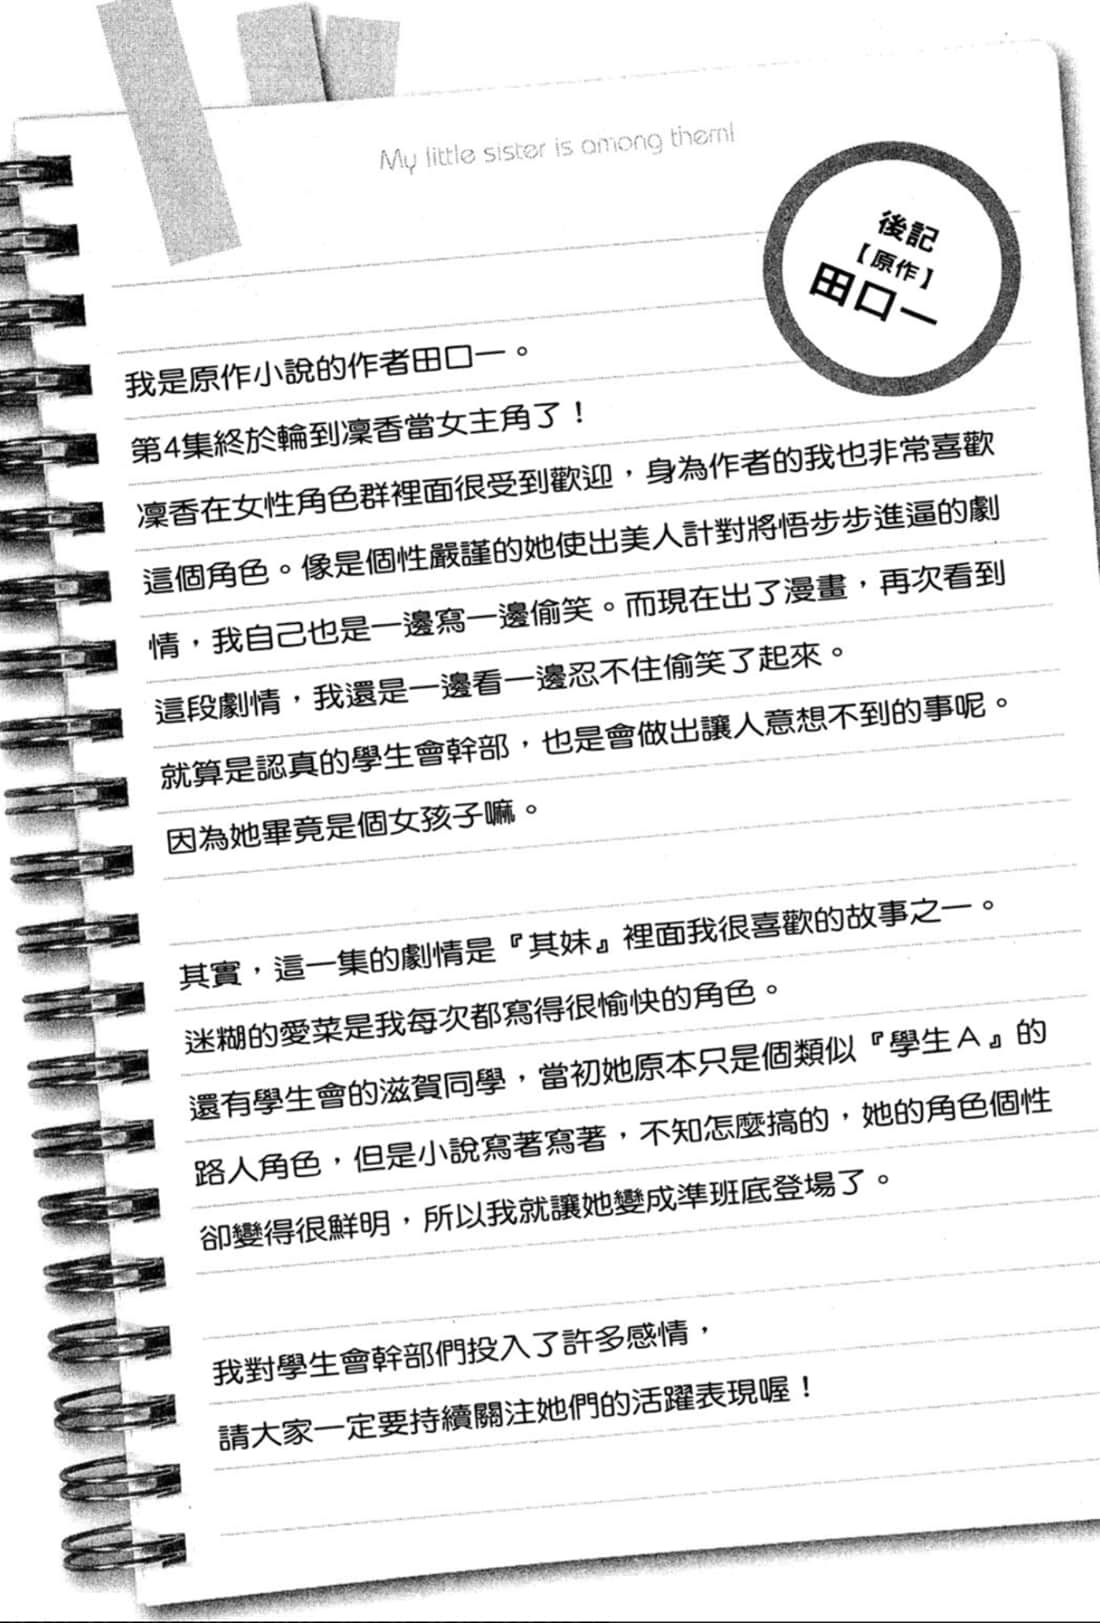 My little sister is among them!
後記
【原作】
田口一
我是原作小說的作者田口一。
第4集終於輪到凜香當女主角了！
凜香在女性角色群裡面很受到歡迎，身為作者的我也非常喜歡
這個角色。像是個性嚴謹的她使出美人計對將悟步步進逼的劇
情，我自己也是一邊寫一邊偷笑。而現在出了漫畫，再次看到
這段劇情，我還是一邊看一邊忍不住偷笑了起來。
就算是認真的學生會幹部，也是會做出讓人意想不到的事呢。
因為她畢竟是個女孩子嘛。
其實，這一集的劇情是『其妹』裡面我很喜歡的故事之一。
迷糊的愛菜是我每次都寫得很愉快的角色。
還有學生會的滋賀同學，當初她原本只是個類似『學生A』的
路人角色，但是小說寫著寫著，不知怎麼搞的，她的角色個性
卻變得很鮮明，所以我就讓她變成準班底登場了。
我對學生會幹部們投入了許多感情，
請大家一定要持續關注她們的活躍表現喔！